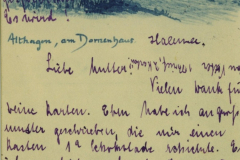 Es wird!
Althagen, am Dornenhaus
Liebe Mutter!
Vielen Dank für
deine Karten. Eben habe ich an Groß-
mutter geschrieben, die mir einen
Kasten 1a Schokolade schickte. E